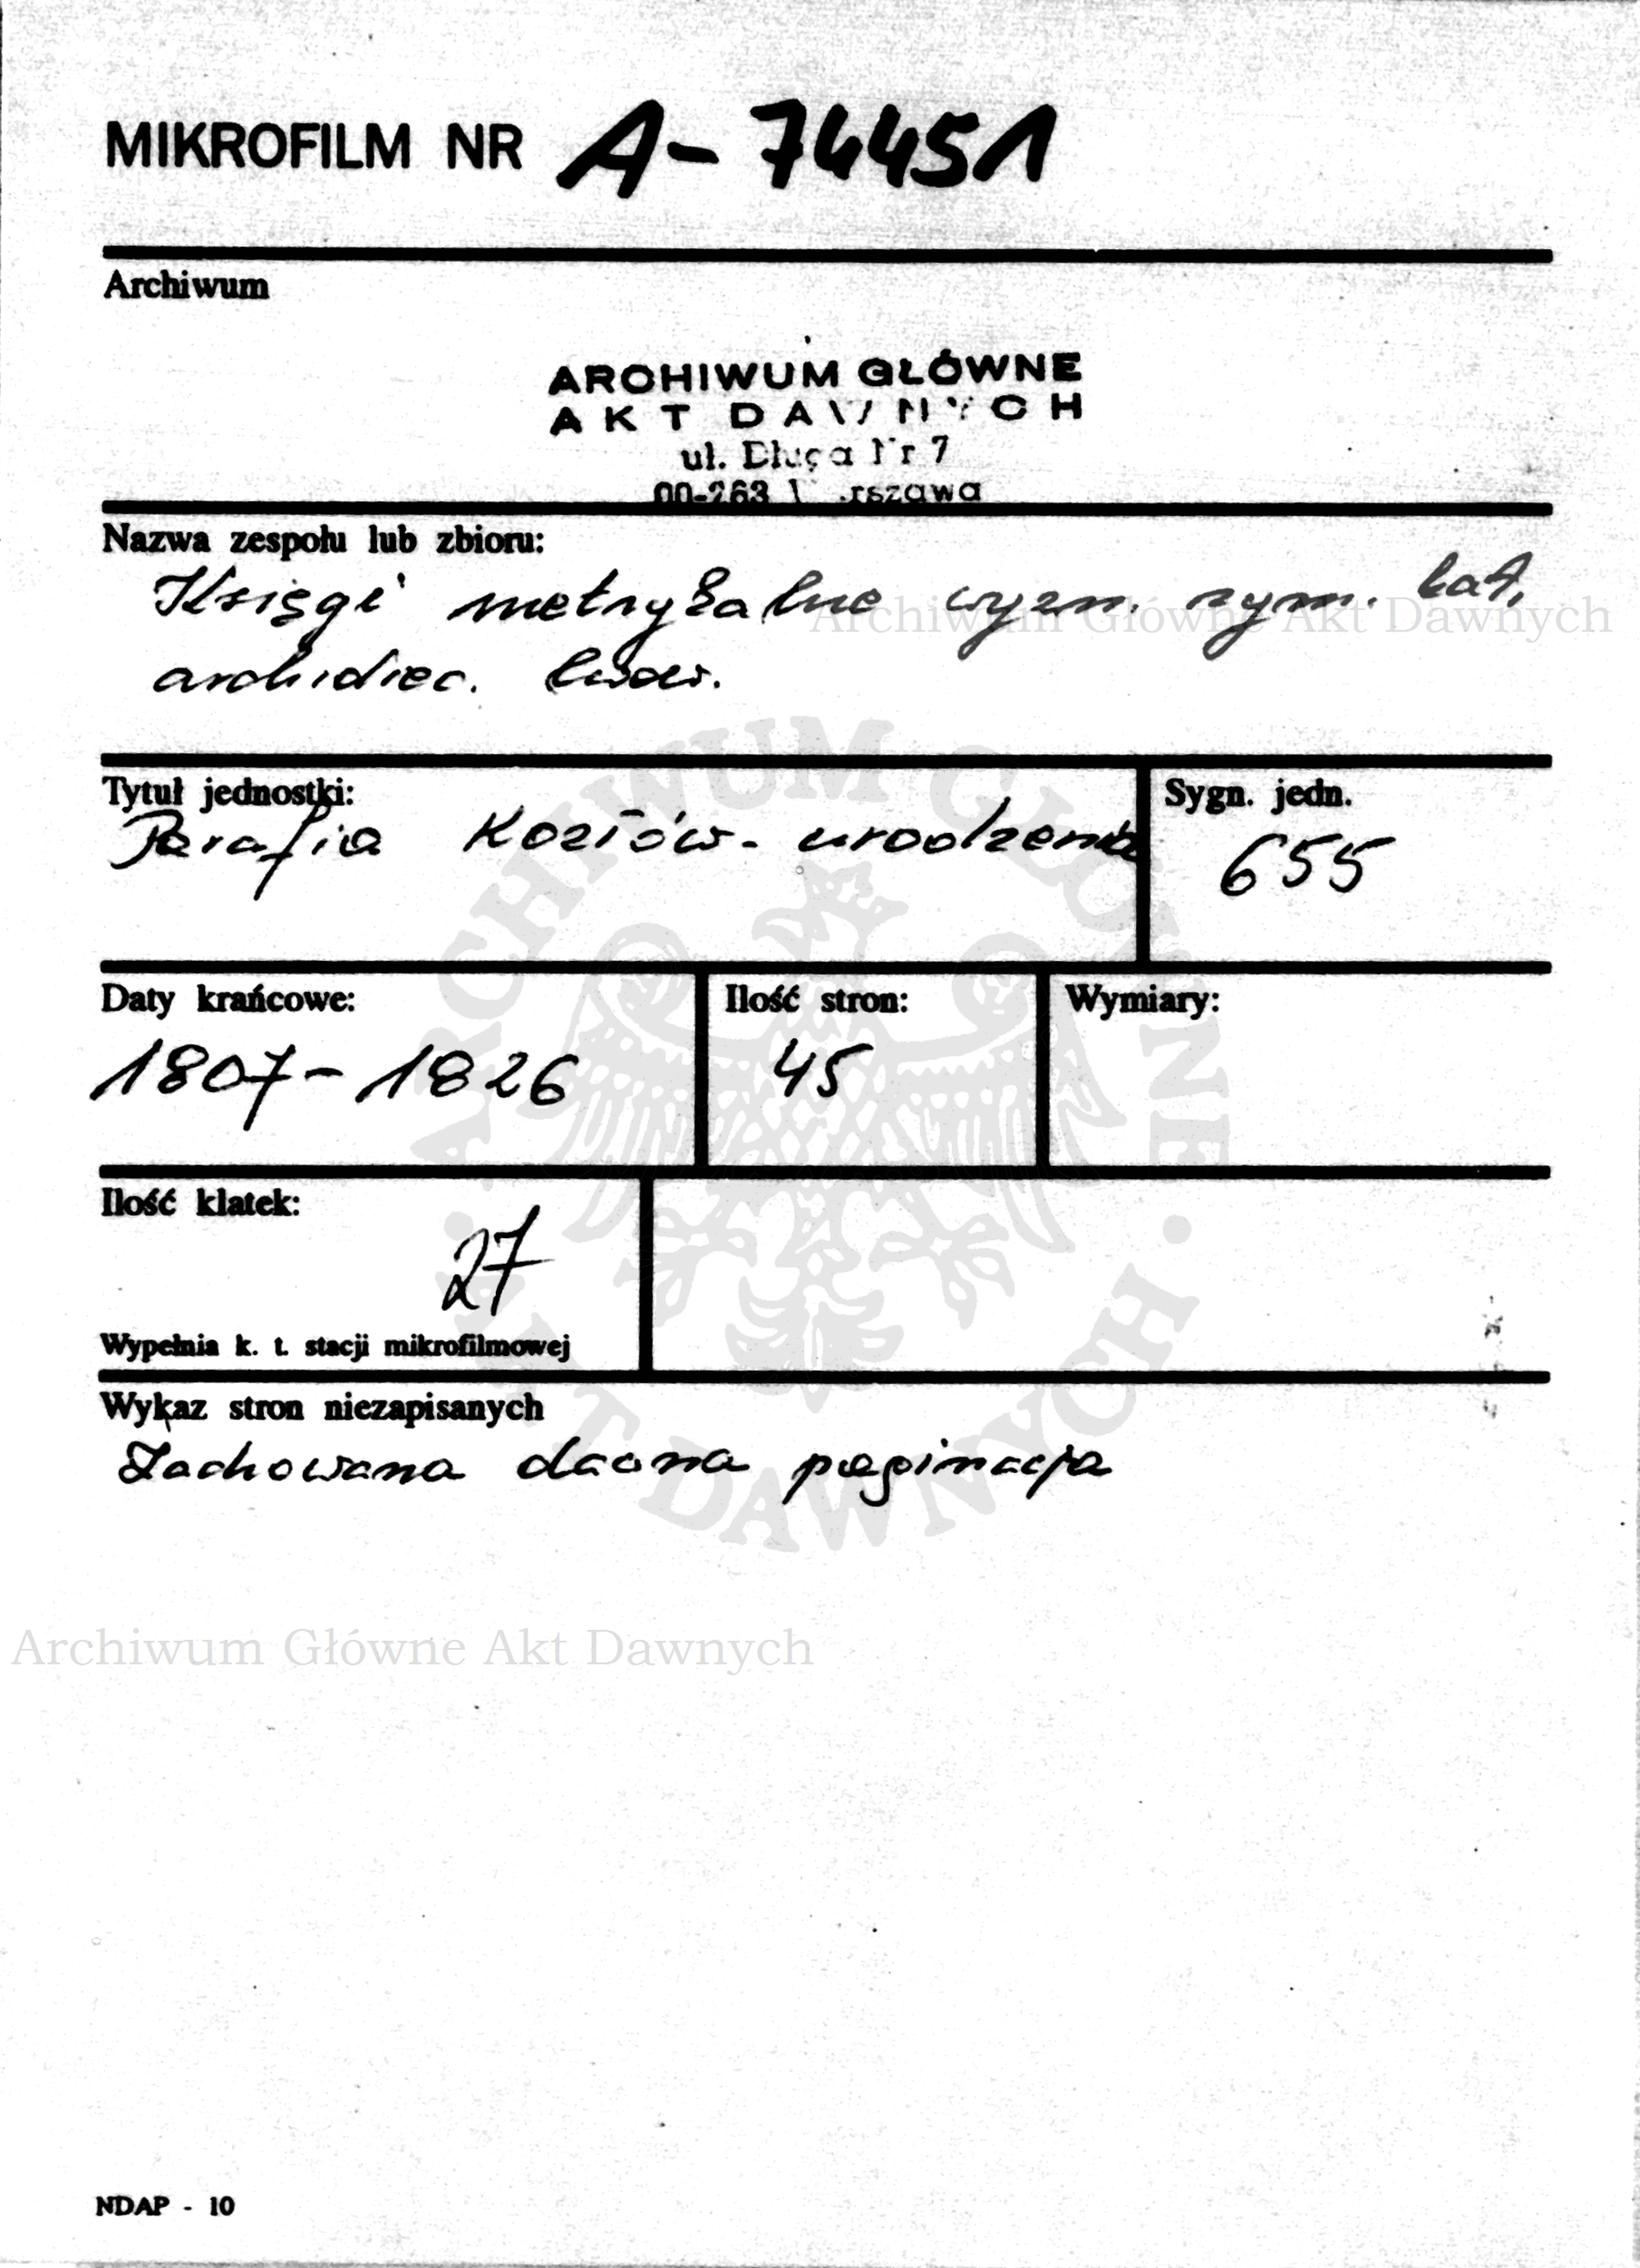 MIKROFILM NR A-74451
Archiwum
ARCHIWUM GŁÓWNE
AKT DAWNYCH
ul. Długa Nr 7
00-263 Warszawa
Nazwa zespołu lub zbioru:
Księgi metrykalne wyzn. rzym. kat.
Archiwum Główne Akt Dawnych
archidiec. lwow.
Tytuł jednostki:
Parafia Kozłów - urodzenia
Sygn. jedn.
655
Daty krańcowe:
1807-1826
Ilość stron:
45
Wymiary:
Ilość klatek:
27
Wypełnia k. t. stacji mikrofilmowej
Wykaz stron niezapisanych
Zachowana dawna paginacja
ARCHIWUM GŁÓWNE AKT DAWNYCH
Archiwum Główne Akt Dawnych
NDAP - 10